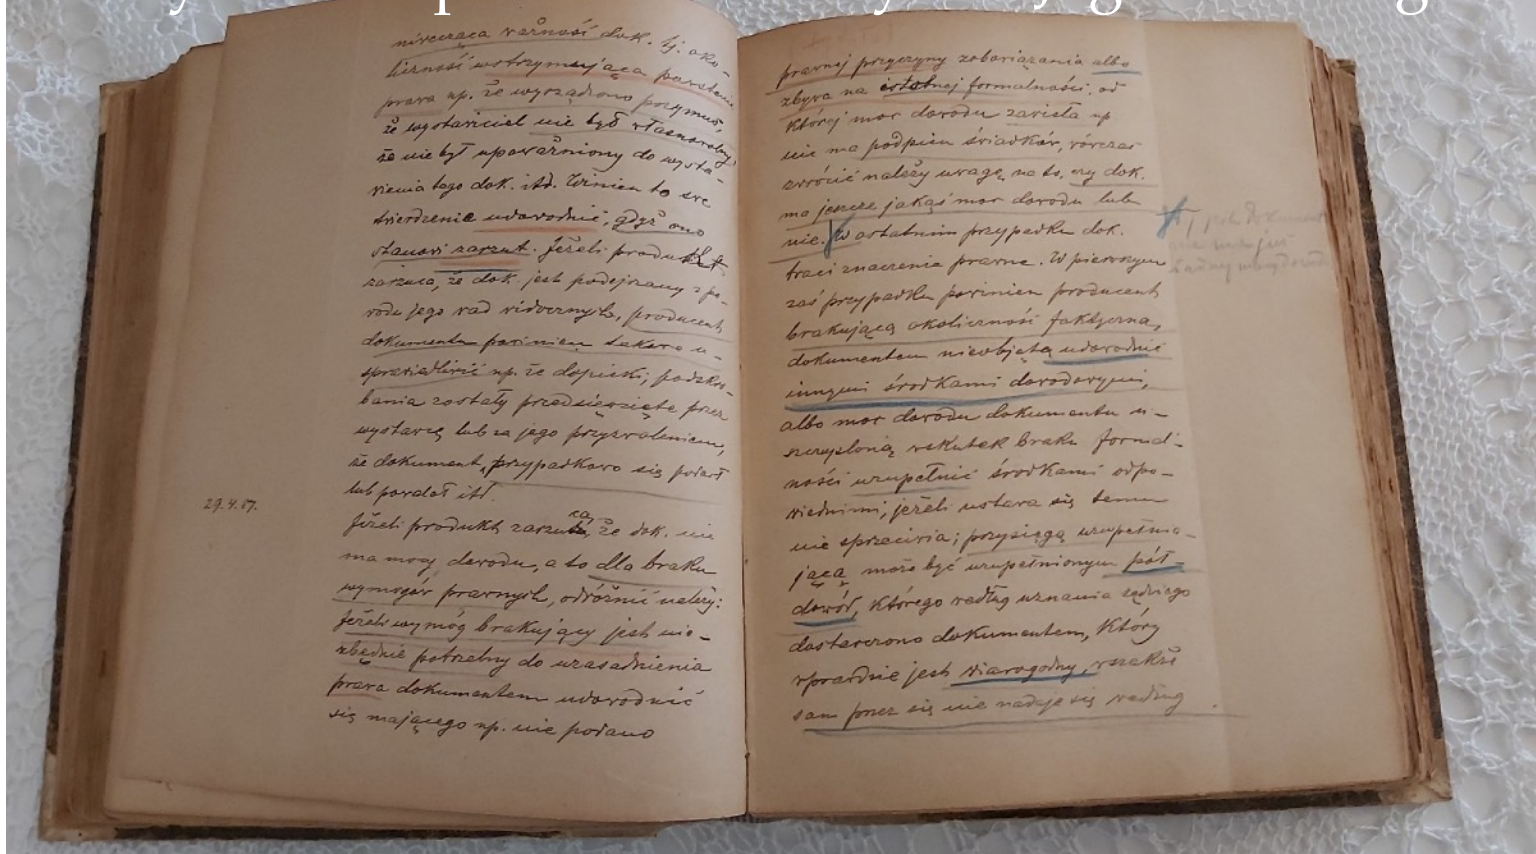 niwecząca ważność dok. tj. oko-
liczność wstrzymująca powstanie
prawa np. że wyrządzono przymus,
że wystawiciel nie był własnowolny,
że nie był upoważniony do wysta-
wienia tego dok. itd. Winien to swe
twierdzenie udowodnić, gdyż ono
stanowi zarzut. Jeżeli produkt
zarzuca, że dok. jest podejrzany z po-
wodu jego wad widocznych, producent
dokumentu powinien takowe u-
sprawiedliwić np. że dopiski, podskro-
bania zostały przedsięwzięte przez
wystawcę lub za jego przyzwoleniem,
że dokument przypadkowo się podarł
lub itd.
29.4.57.
Jeżeli produkt zarzuca, że dok. nie
ma mocy dowodu, a to dla braku
wymogów prawnych, odróżnić należy:
Jeżeli wymóg brakujący jest nie-
zbędnie potrzebny do uzasadnienia
prawa dokumentem udowodnić
się mającego np. nie podano
prawnej przyczyny zobowiązania albo
zbywa na istotnej formalności, od
której moc dowodu zawisła np
nie ma podpisu świadków, wówczas
zwrócić należy uwagę na to, czy dok.
ma jeszcze jakąś moc dowodu lub
nie. W ostatnim przypadku dok.
traci znaczenie prawne. W pierwszym
zaś przypadku powinien producent
brakującą okoliczność faktyczną,
dokumentem nieobjętą udowodnić
innymi środkami dowodowymi,
albo moc dowodu dokumentu u-
szczuploną wskutek braku formal-
ności uzupełnić środkami odpo-
wiednimi, jeżeli ustawa się temu
nie sprzeciwia; przysięgą uzupełnia-
jącą może być uzupełnionym pół-
dowód, którego według uznania sędziego
dostarczono dokumentem, który
wprawdzie jest wiarogodny, wszakże
sam przez się nie nadaje się według